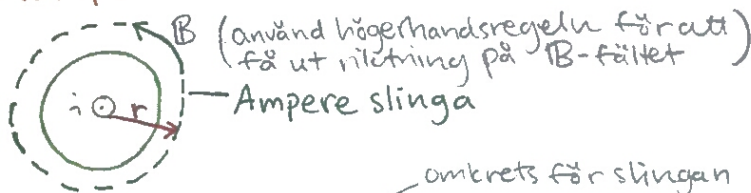 B (använd högerhandsregeln för att
få ut riktning på B-fältet)
i r
Ampere slinga
omkrets för slingan